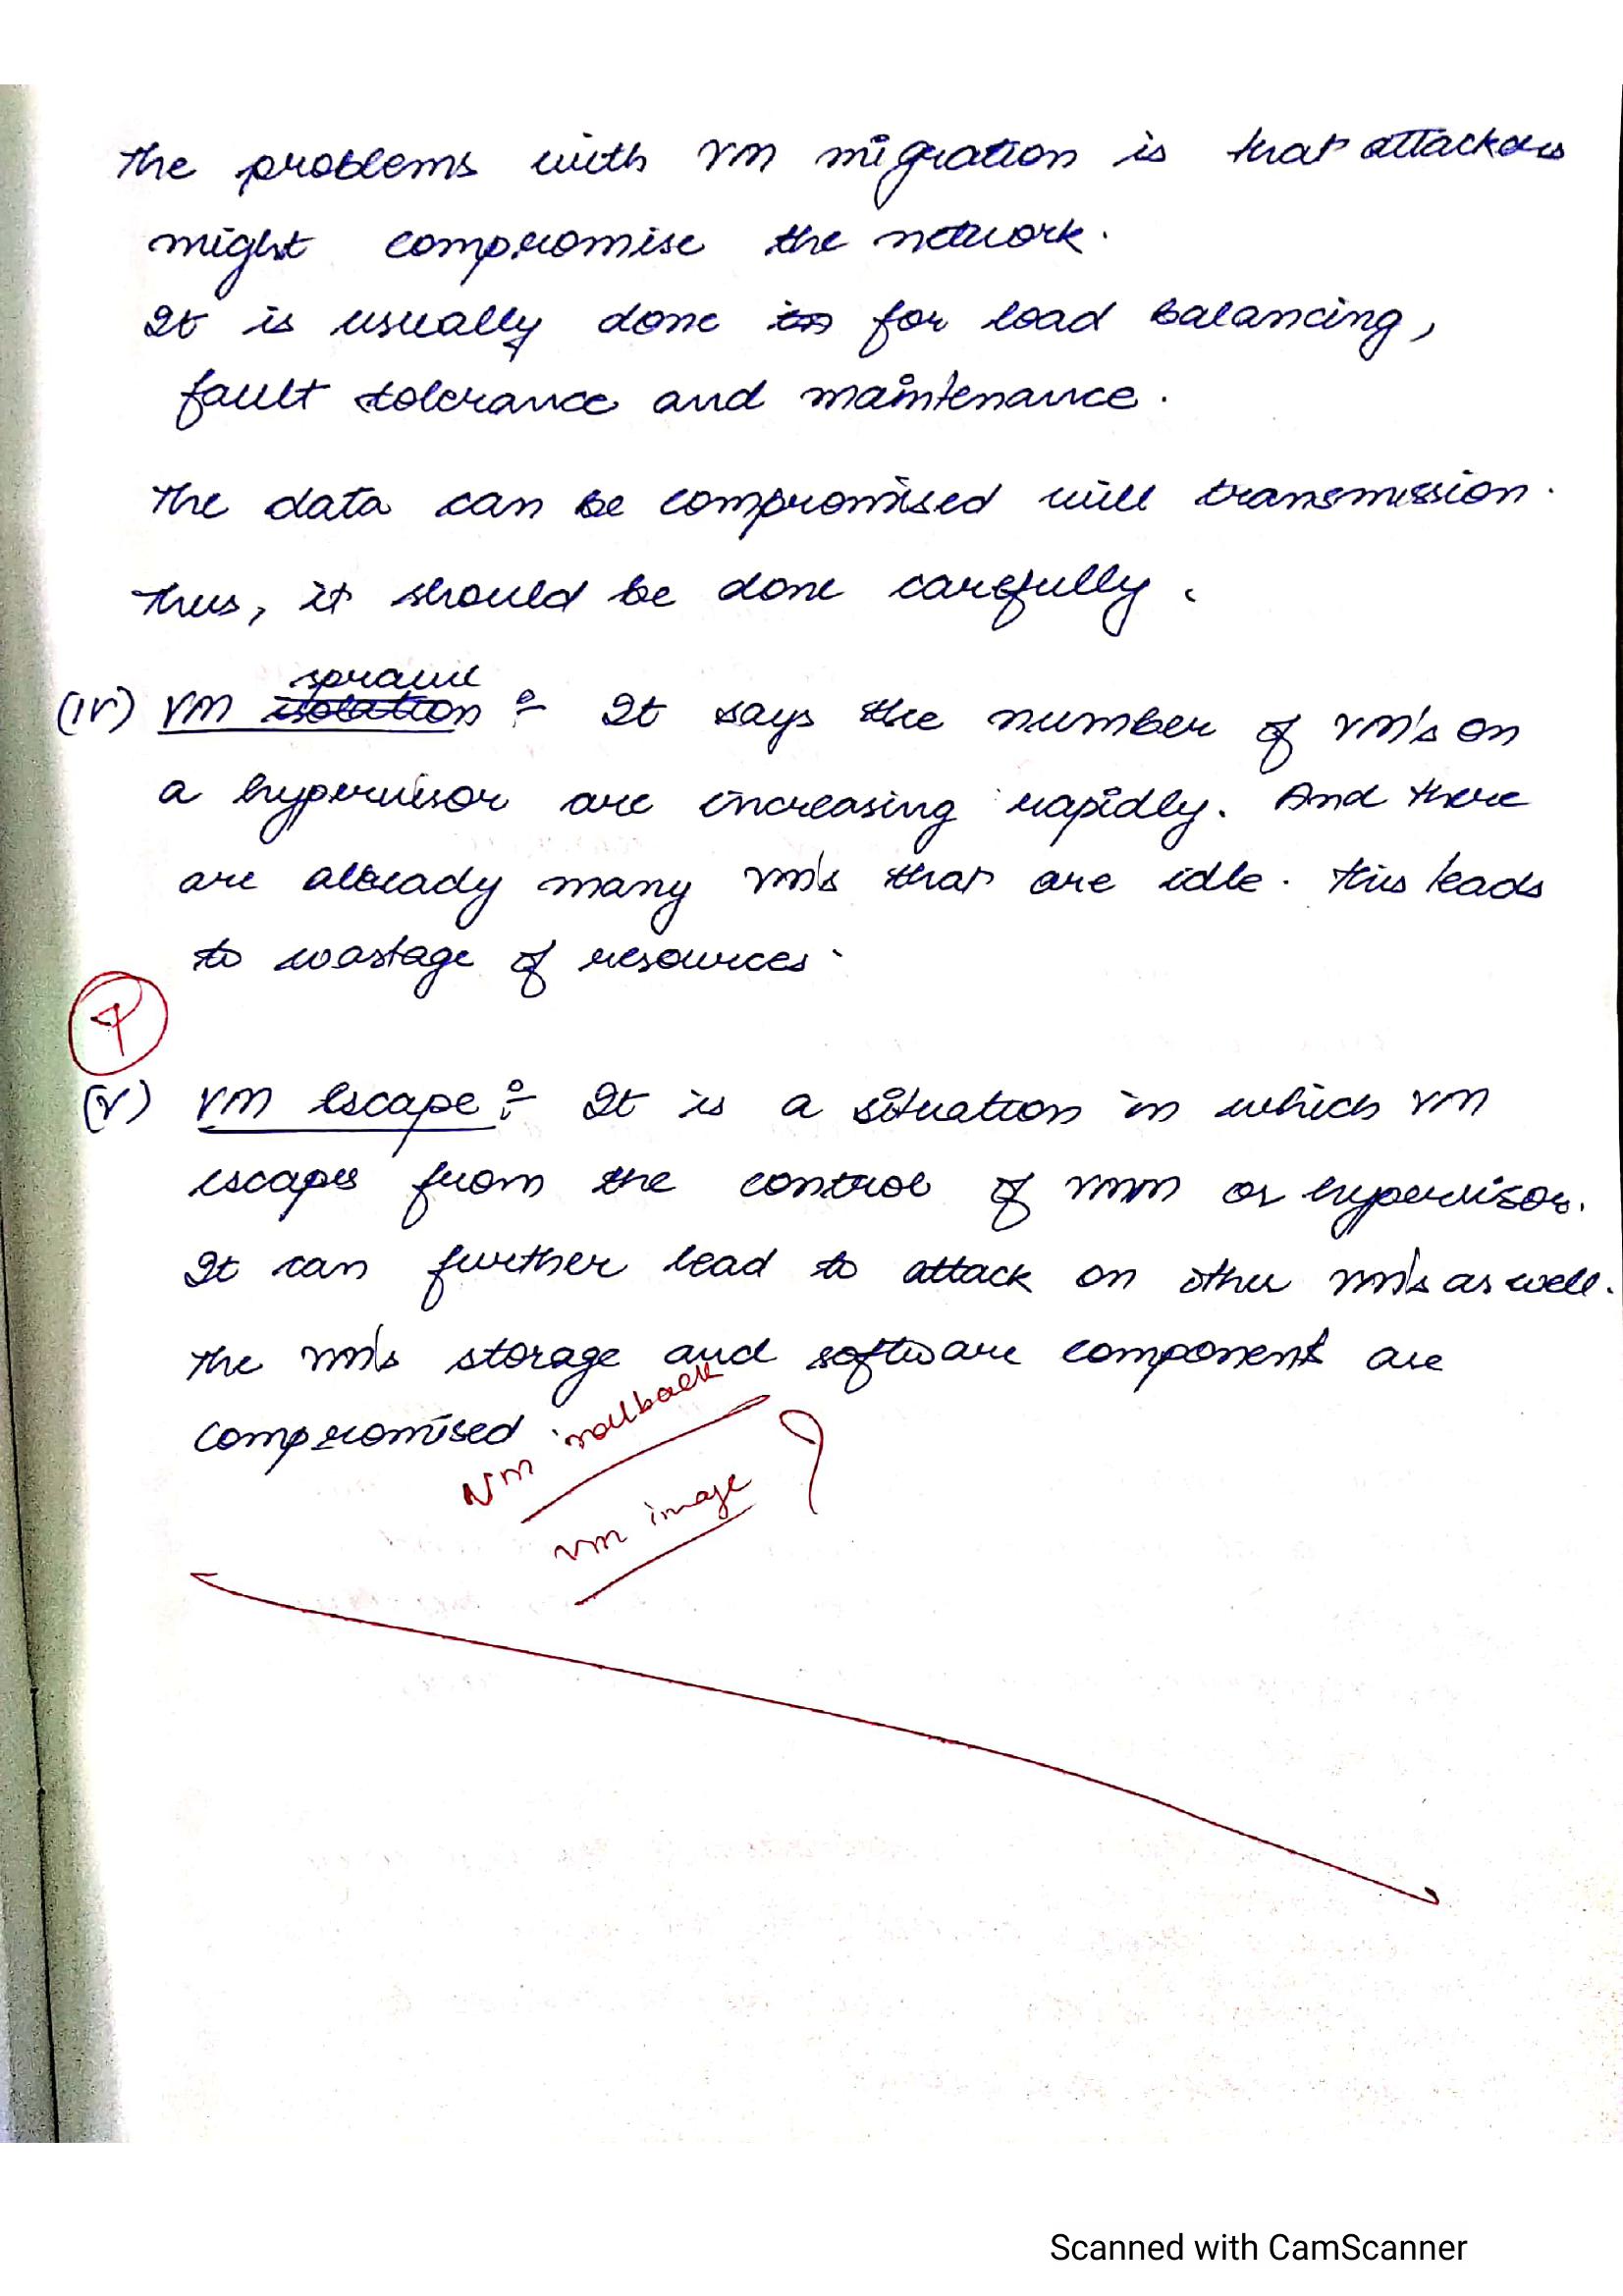 The problems with VM migration is that attackers
might compromise the network.
It is usually done in for load balancing,
fault tolerance and maintenance.
The data can be compromised will transmission.
Thus, it should be done carefully.
sprawl
(iv) VM isolation :- It says the number of VM's on
a hypervisor are increasing rapidly. And there
are already many VM's that are idle. This leads
to wastage of resources.
(v) VM Escape :- It is a situation in which VM
escapes from the control of VMM or hypervisor.
It can further lead to attack on other VM's as well.
The VM's storage and software component are
compromised
VM rollback
VM image ?
Scanned with CamScanner